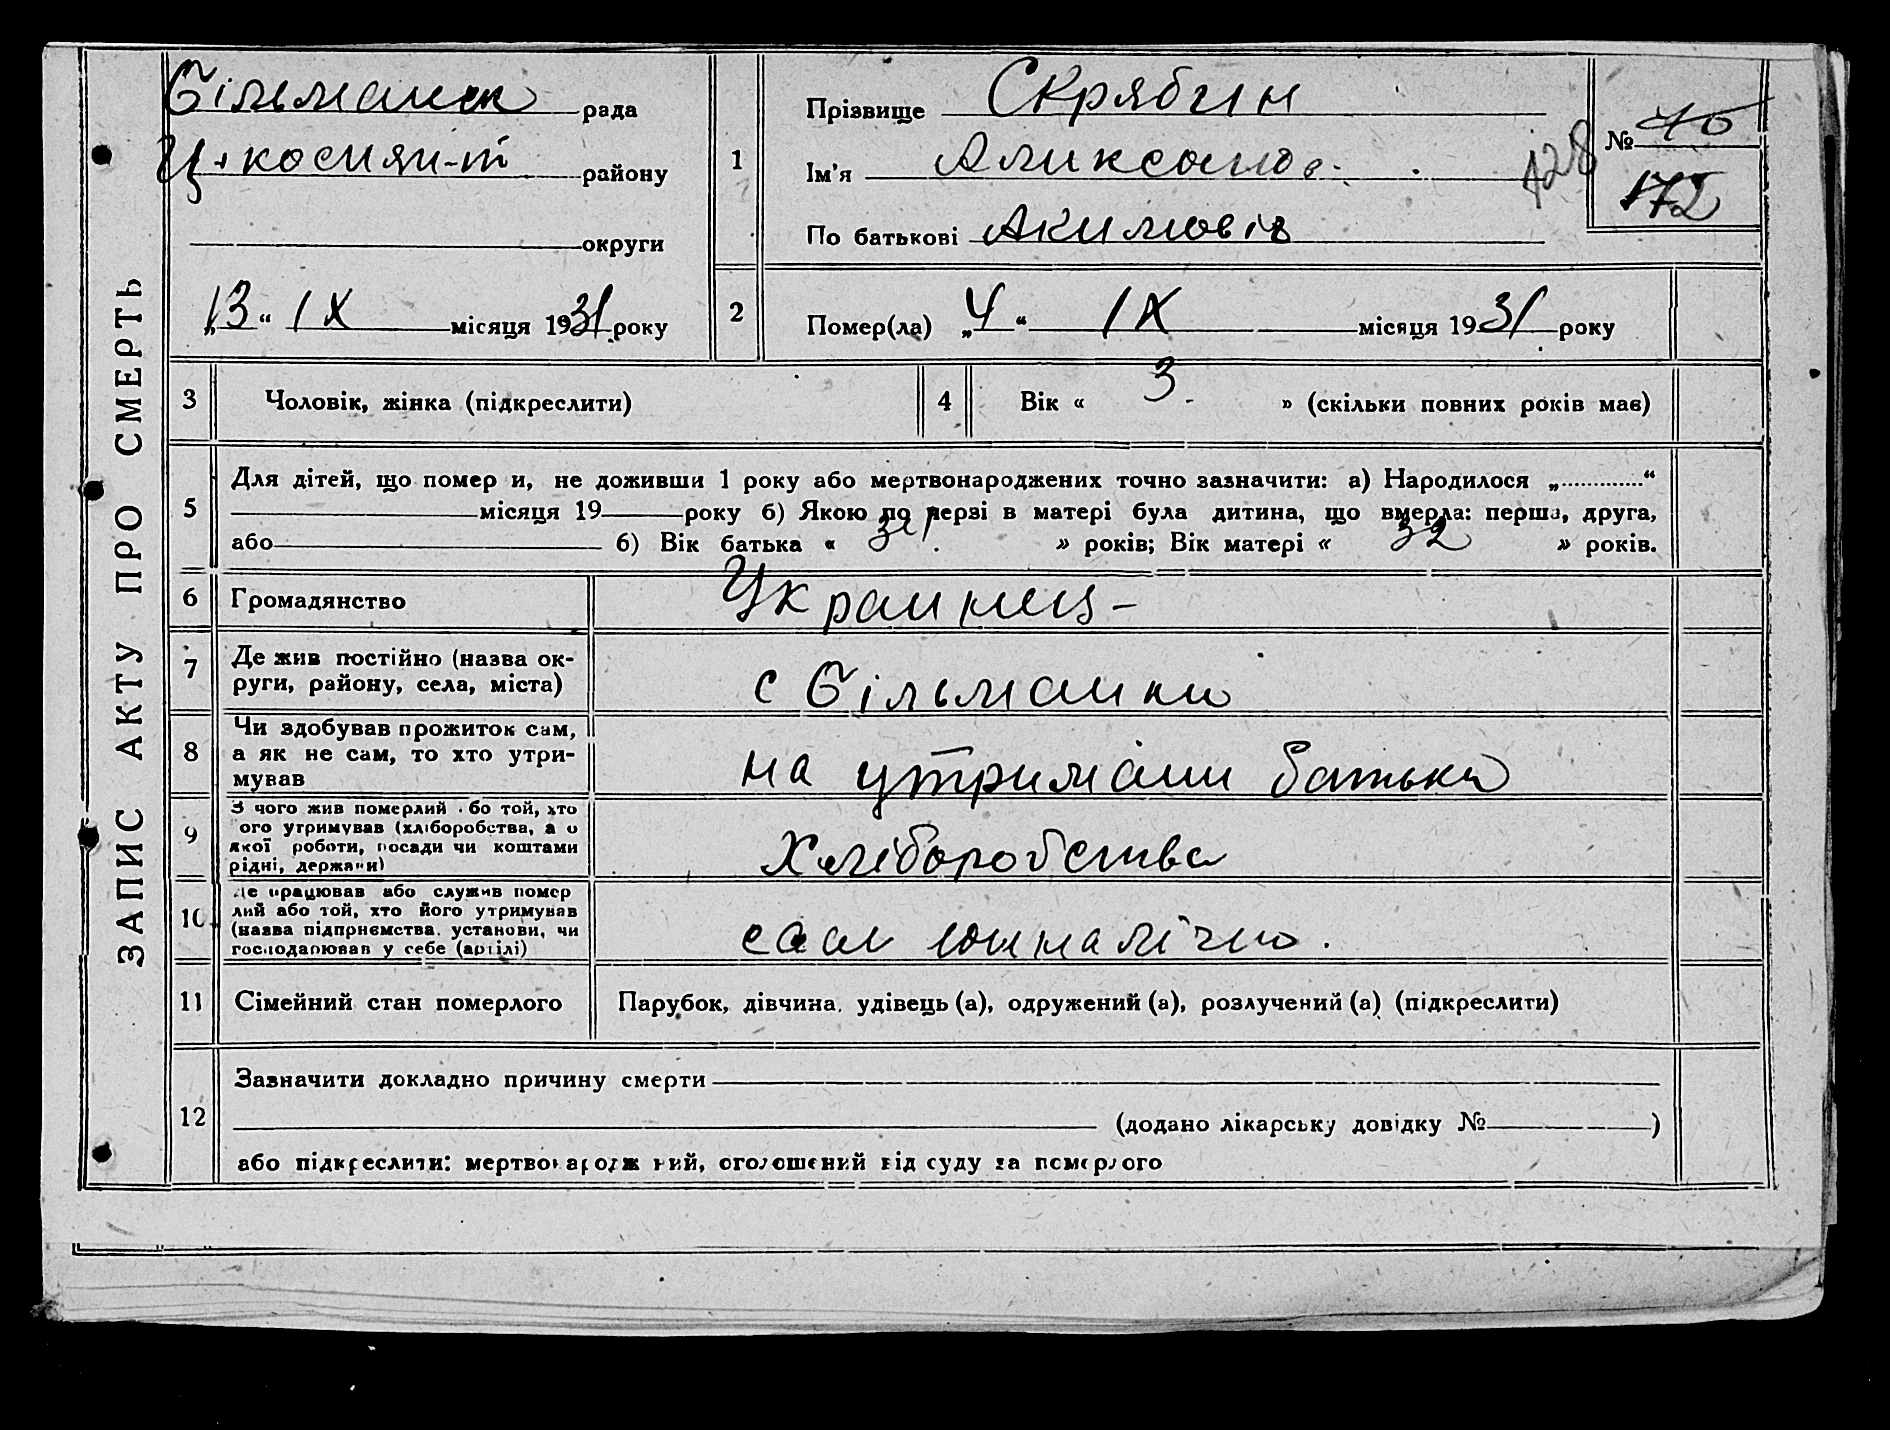 ЗАПИС АКТУ ПРО СМЕРТЬ
рада
району
округи
„13“ IX місяця 1931 року
1
Прізвище Скрябин
Ім'я
По батькові
№ 40
128
172
2
Помер(ла) „4“ IX місяця 1931 року
3 Чоловік, жінка (підкреслити)
4 Вік « 3 » (скільки повних років має)
5 Для дітей, що помер и, не доживши 1 року або мертвонароджених точно зазначити: а) Народилося „ “
місяця 19 року б) Якою по черзі в матері була дитина, що вмерла: перша, друга,
або б) Вік батька « » років; Вік матері « 32 » років.
6 Громадянство Украинец-
7 Де жив постійно (назва ок-
руги, району, села, міста)
с Більманки
8 Чи здобував прожиток сам,
а як не сам, то хто утри-
мував
на утримані батька
9 З чого жив померлий або той, хто
ого утримував (хліборобства, а о
якої роботи, посади чи коштами
рідні, держави)
Хліборобства
10 Де працював або служив помер
лий або той, хто його утримував
(назва підприємства, установи, чи
господарював у себе (артілі)
11 Сімейний стан померлого
Парубок, дівчина, удівець (а), одружений (а), розлучений (а) (підкреслити)
12 Зазначити докладно причину смерти
(додано лікарську довідку № )
або підкреслити: мертвонароджений, оголошений від суду за померлого